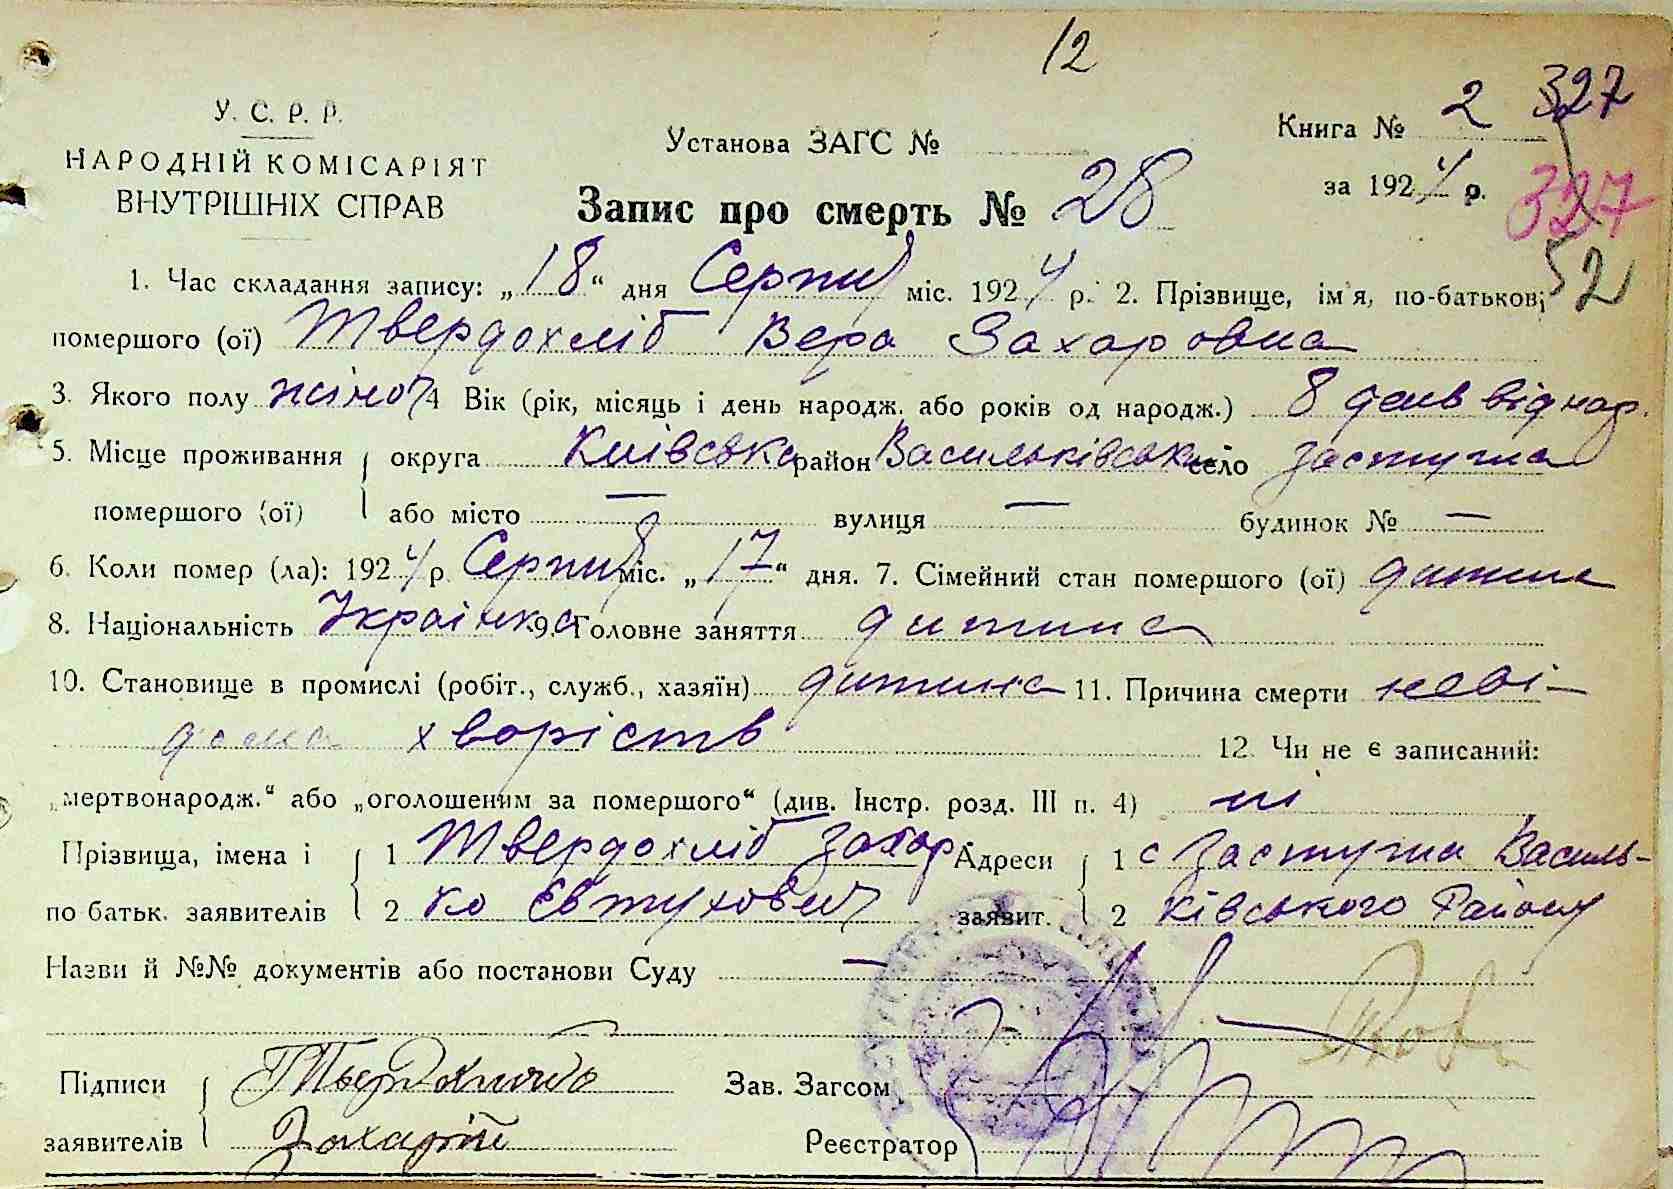 12
У. С. Р. Р.
НАРОДНІЙ КОМІСАРІЯТ
ВНУТРІШНІХ СПРАВ
Установа ЗАГС №
Запис про смерть № 28
Книга № 2 327
за 1924 р. 327
52
1. Час складання запису: „18“ дня Серпня міс. 1924 р. 2. Прізвище, ім'я, по-батькові
помершого (ої) Твердохліб Вера Захаровна
3. Якого полу жіноч 4 Вік (рік, місяць і день народж. або років од народж.) 8 денв від нар.
5. Місце проживання округа Київська район Васильківськ село Застугна
помершого (ої) або місто — вулиця — будинок № —
6. Коли помер (ла): 1924 р Серпня міс. „17“ дня. 7. Сімейний стан помершого (ої) дитина
8. Національність Українка 9. Головне заняття дитина
10. Становище в промислі (робіт., служб., хазяїн) дитина 11. Причина смерти неві-
дома хворість 12. Чи не є записаний:
„мертвонародж.“ або „оголошеним за помершого“ (див. Інстр. розд. III п. 4) ні
Прізвища, імена і 1 Твердохліб Захар Адреси 1 с Застугна Василь-
по батьк. заявителів 2 ко Євтухович заявит. 2 ківського Району
Назви й №№ документів або постанови Суду —
Підписи Зав. Загсом
заявителів Захарій Реєстратор